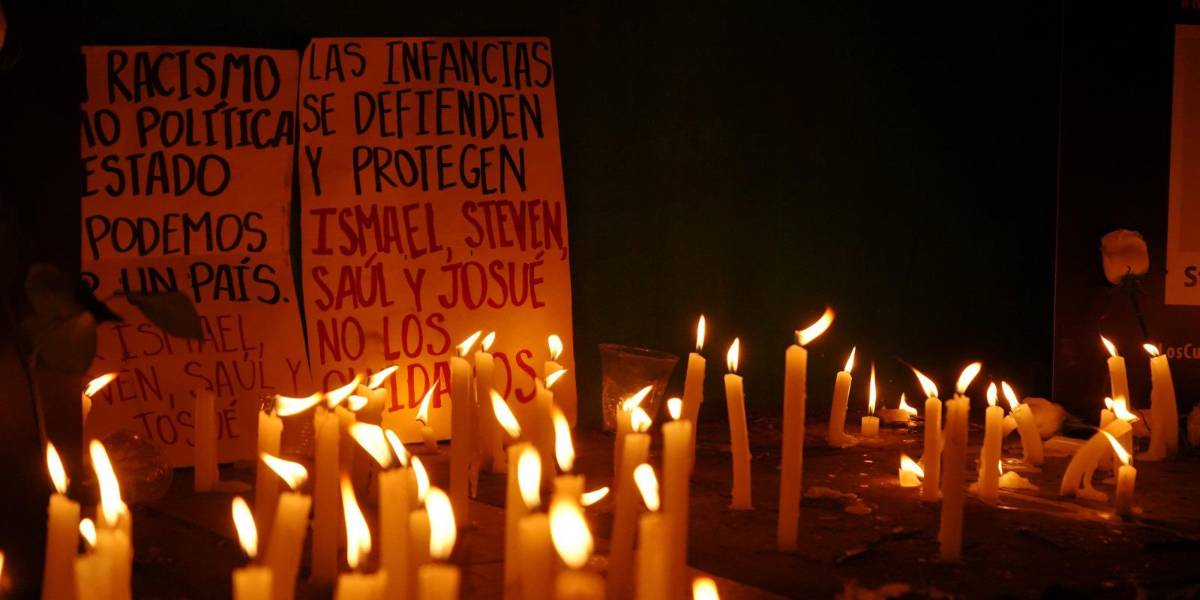 RACISMO
POLÍTICA
ESTADO
PODEMOS
UN PAÍS.
ISMAEL,
SAÚL Y
JOSUÉ
LAS INFANCIAS
SE DEFIENDEN
Y PROTEGEN
ISMAEL, STEVEN,
SAÚL Y JOSUÉ
NO LOS
OLVIDAMOS